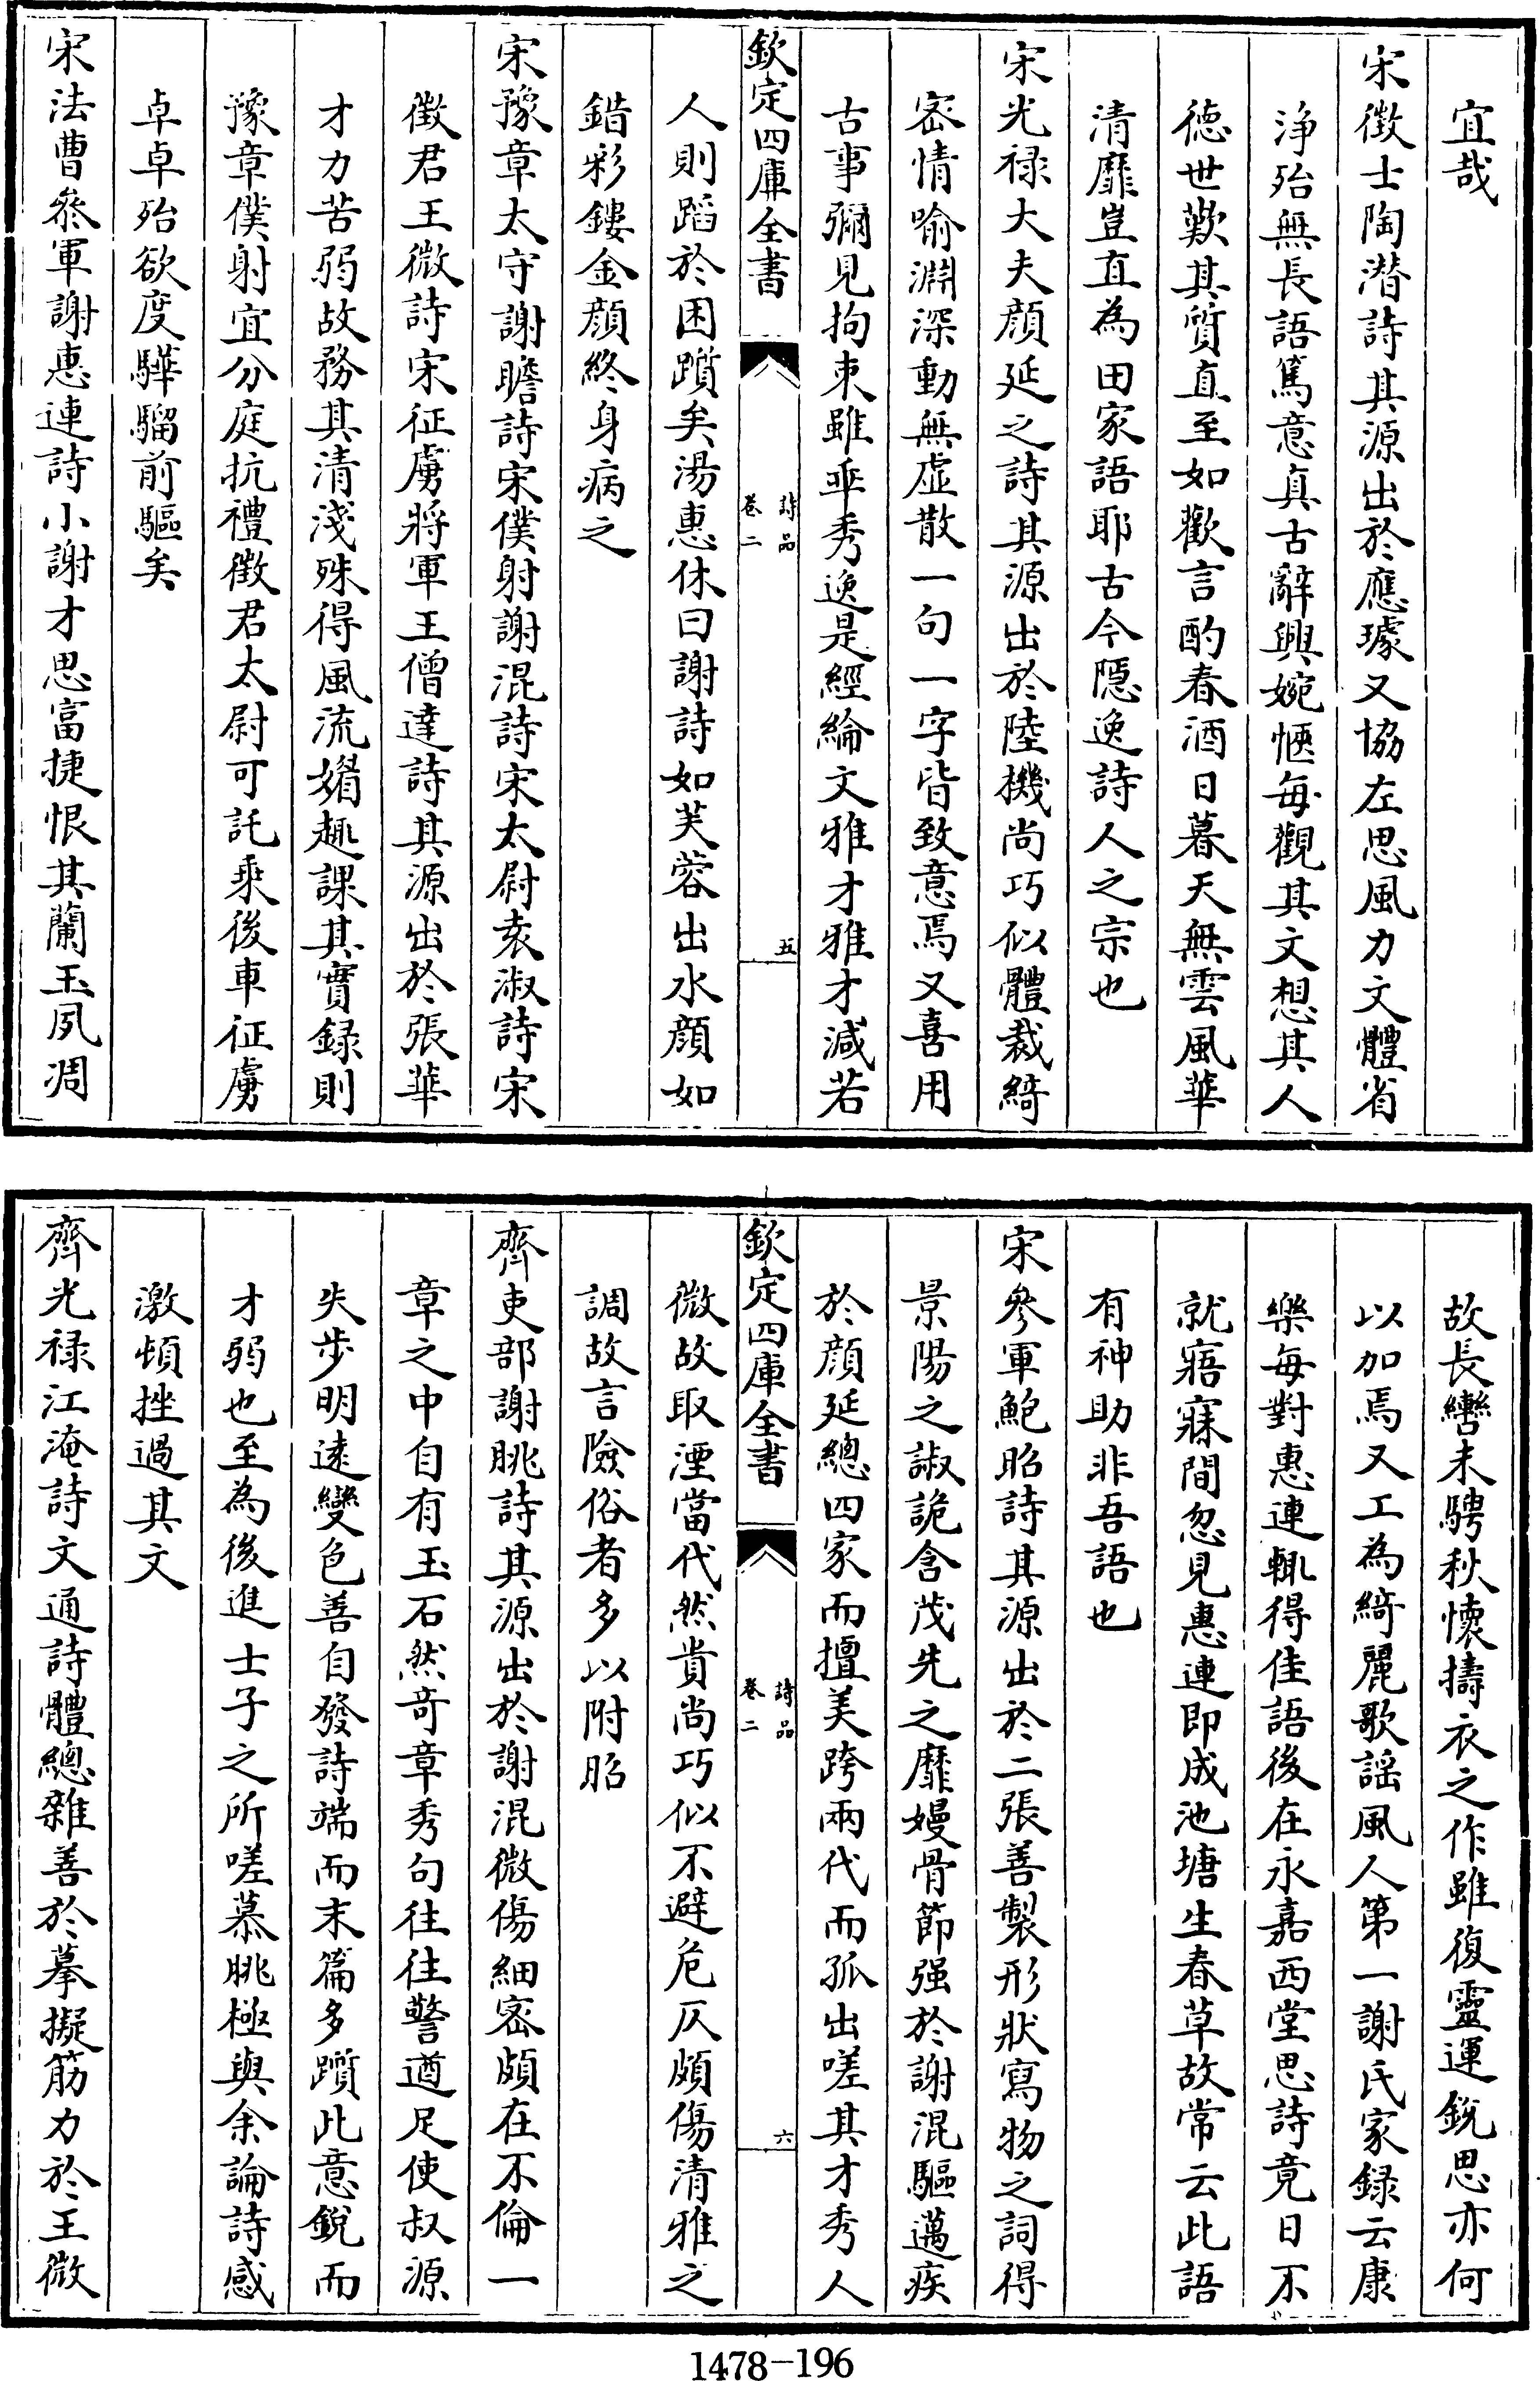 宜哉
宋徴士陶潛詩其源出於應璩又協左思風力文體省
浄殆無長語篤意真古辭興婉愜每觀其文想其人
徳世歎其質直至如歡言酌春酒日暮天無雲風華
清靡豈直為田家語耶古今隱逸詩人之宗也
宋光禄大夫顔延之詩其源出於陸機尚巧似體裁綺
宻情喻淵深動無虚散一句一字皆致意焉又喜用
古事彌見拘束雖乖秀逸是經綸文雅才雅才減若
欽定四庫全書
詩品
卷二
五
人則蹈於困躓矣湯惠休曰謝詩如芙蓉出水顔如
錯彩鏤金顔終身病之
宋豫章太守謝瞻詩宋僕射謝混詩宋太尉袁淑詩宋
徴君王微詩宋征虜將軍王僧達詩其源出於張華
才力苦弱故務其清淺殊得風流媚趣課其實録則
豫章僕射宜分庭抗禮徴君太尉可託乘後車征虜
卓卓殆欲度驊騮前驅矣
宋法曹叅軍謝惠連詩小謝才思富捷恨其蘭玉夙凋
故長轡未騁秋懷擣衣之作雖復靈運鋭思亦何
以加焉又工為綺麗歌謡風人第一謝氏家録云康
樂每對惠連輒得佳語後在永嘉西堂思詩竟日不
就寤寐間忽見惠連即成池塘生春草故常云此語
有神助非吾語也
宋參軍鮑昭詩其源出於二張善製形狀寫物之詞得
景陽之諔詭含茂先之靡嫚骨節强於謝混驅邁疾
於顔延總四家而擅美跨兩代而孤出嗟其才秀人
欽定四庫全書
詩品
卷二
六
微故取湮當代然貴尚巧似不避危仄頗傷清雅之
調故言險俗者多以附昭
齊吏部謝朓詩其源出於謝混微傷細宻頗在不倫一
章之中自有玉石然竒章秀句往往警遒足使叔源
失步明逺變色善自發詩端而末篇多躓此意鋭而
才弱也至為後進士子之所嗟慕朓極與余論詩感
激頓挫過其文
齊光禄江淹詩文通詩體總雜善於摹擬筋力於王微
1478-196